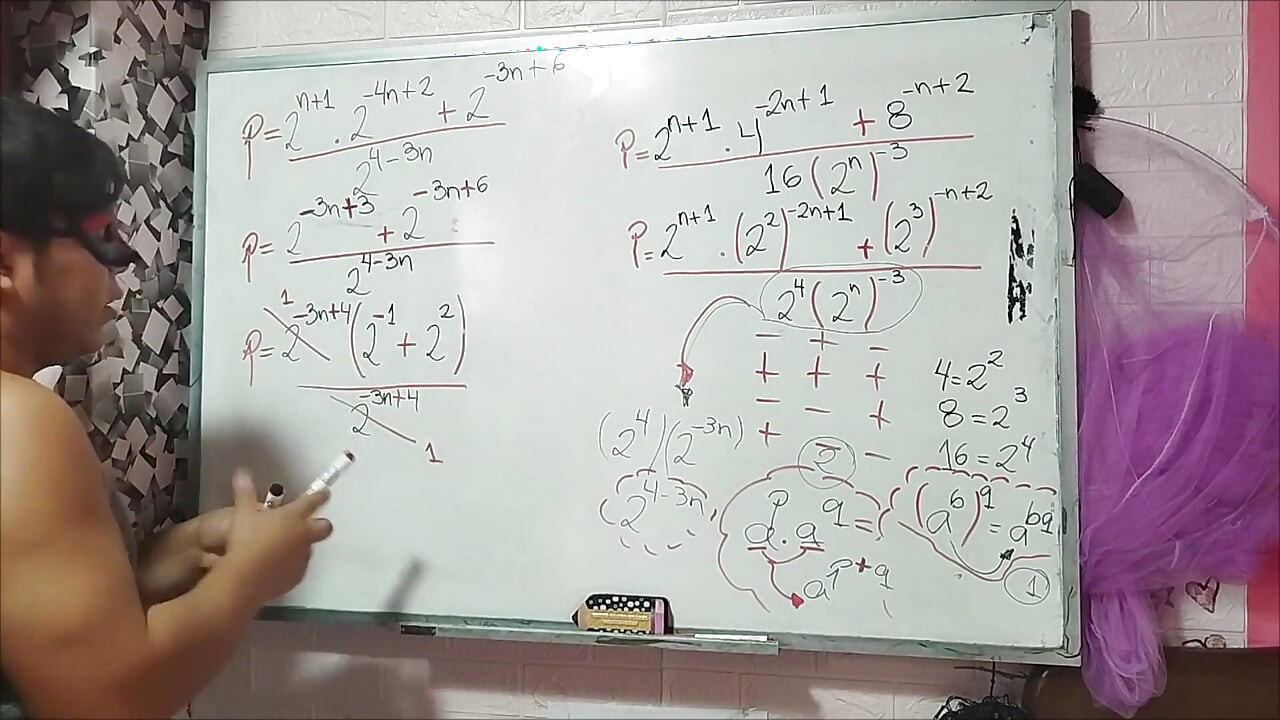 P = 2^{n+1} . 2^{-4n+2} + 2^{-3n+6}
2^{4-3n}
P = 2^{-3n+3} + 2^{-3n+6}
2^{4-3n}
1
P = 2^{-3n+4} (2^{-1} + 2^{2})
2^{-3n+4}
1
P = 2^{n+1} . 4^{-2n+1} + 8^{-n+2}
16 (2^{n})^{-3}
P = 2^{n+1} . (2^{2})^{-2n+1} + (2^{3})^{-n+2}
2^{4} (2^{n})^{-3}
- + -
+ + +
- - +
+ - -
4 = 2^{2}
8 = 2^{3}
16 = 2^{4}
(2^{4})(2^{-3n})
2^{4-3n}
2
a^{p} . a^{q} =
a^{p+q}
(a^{b})^{q} = a^{bq}
1